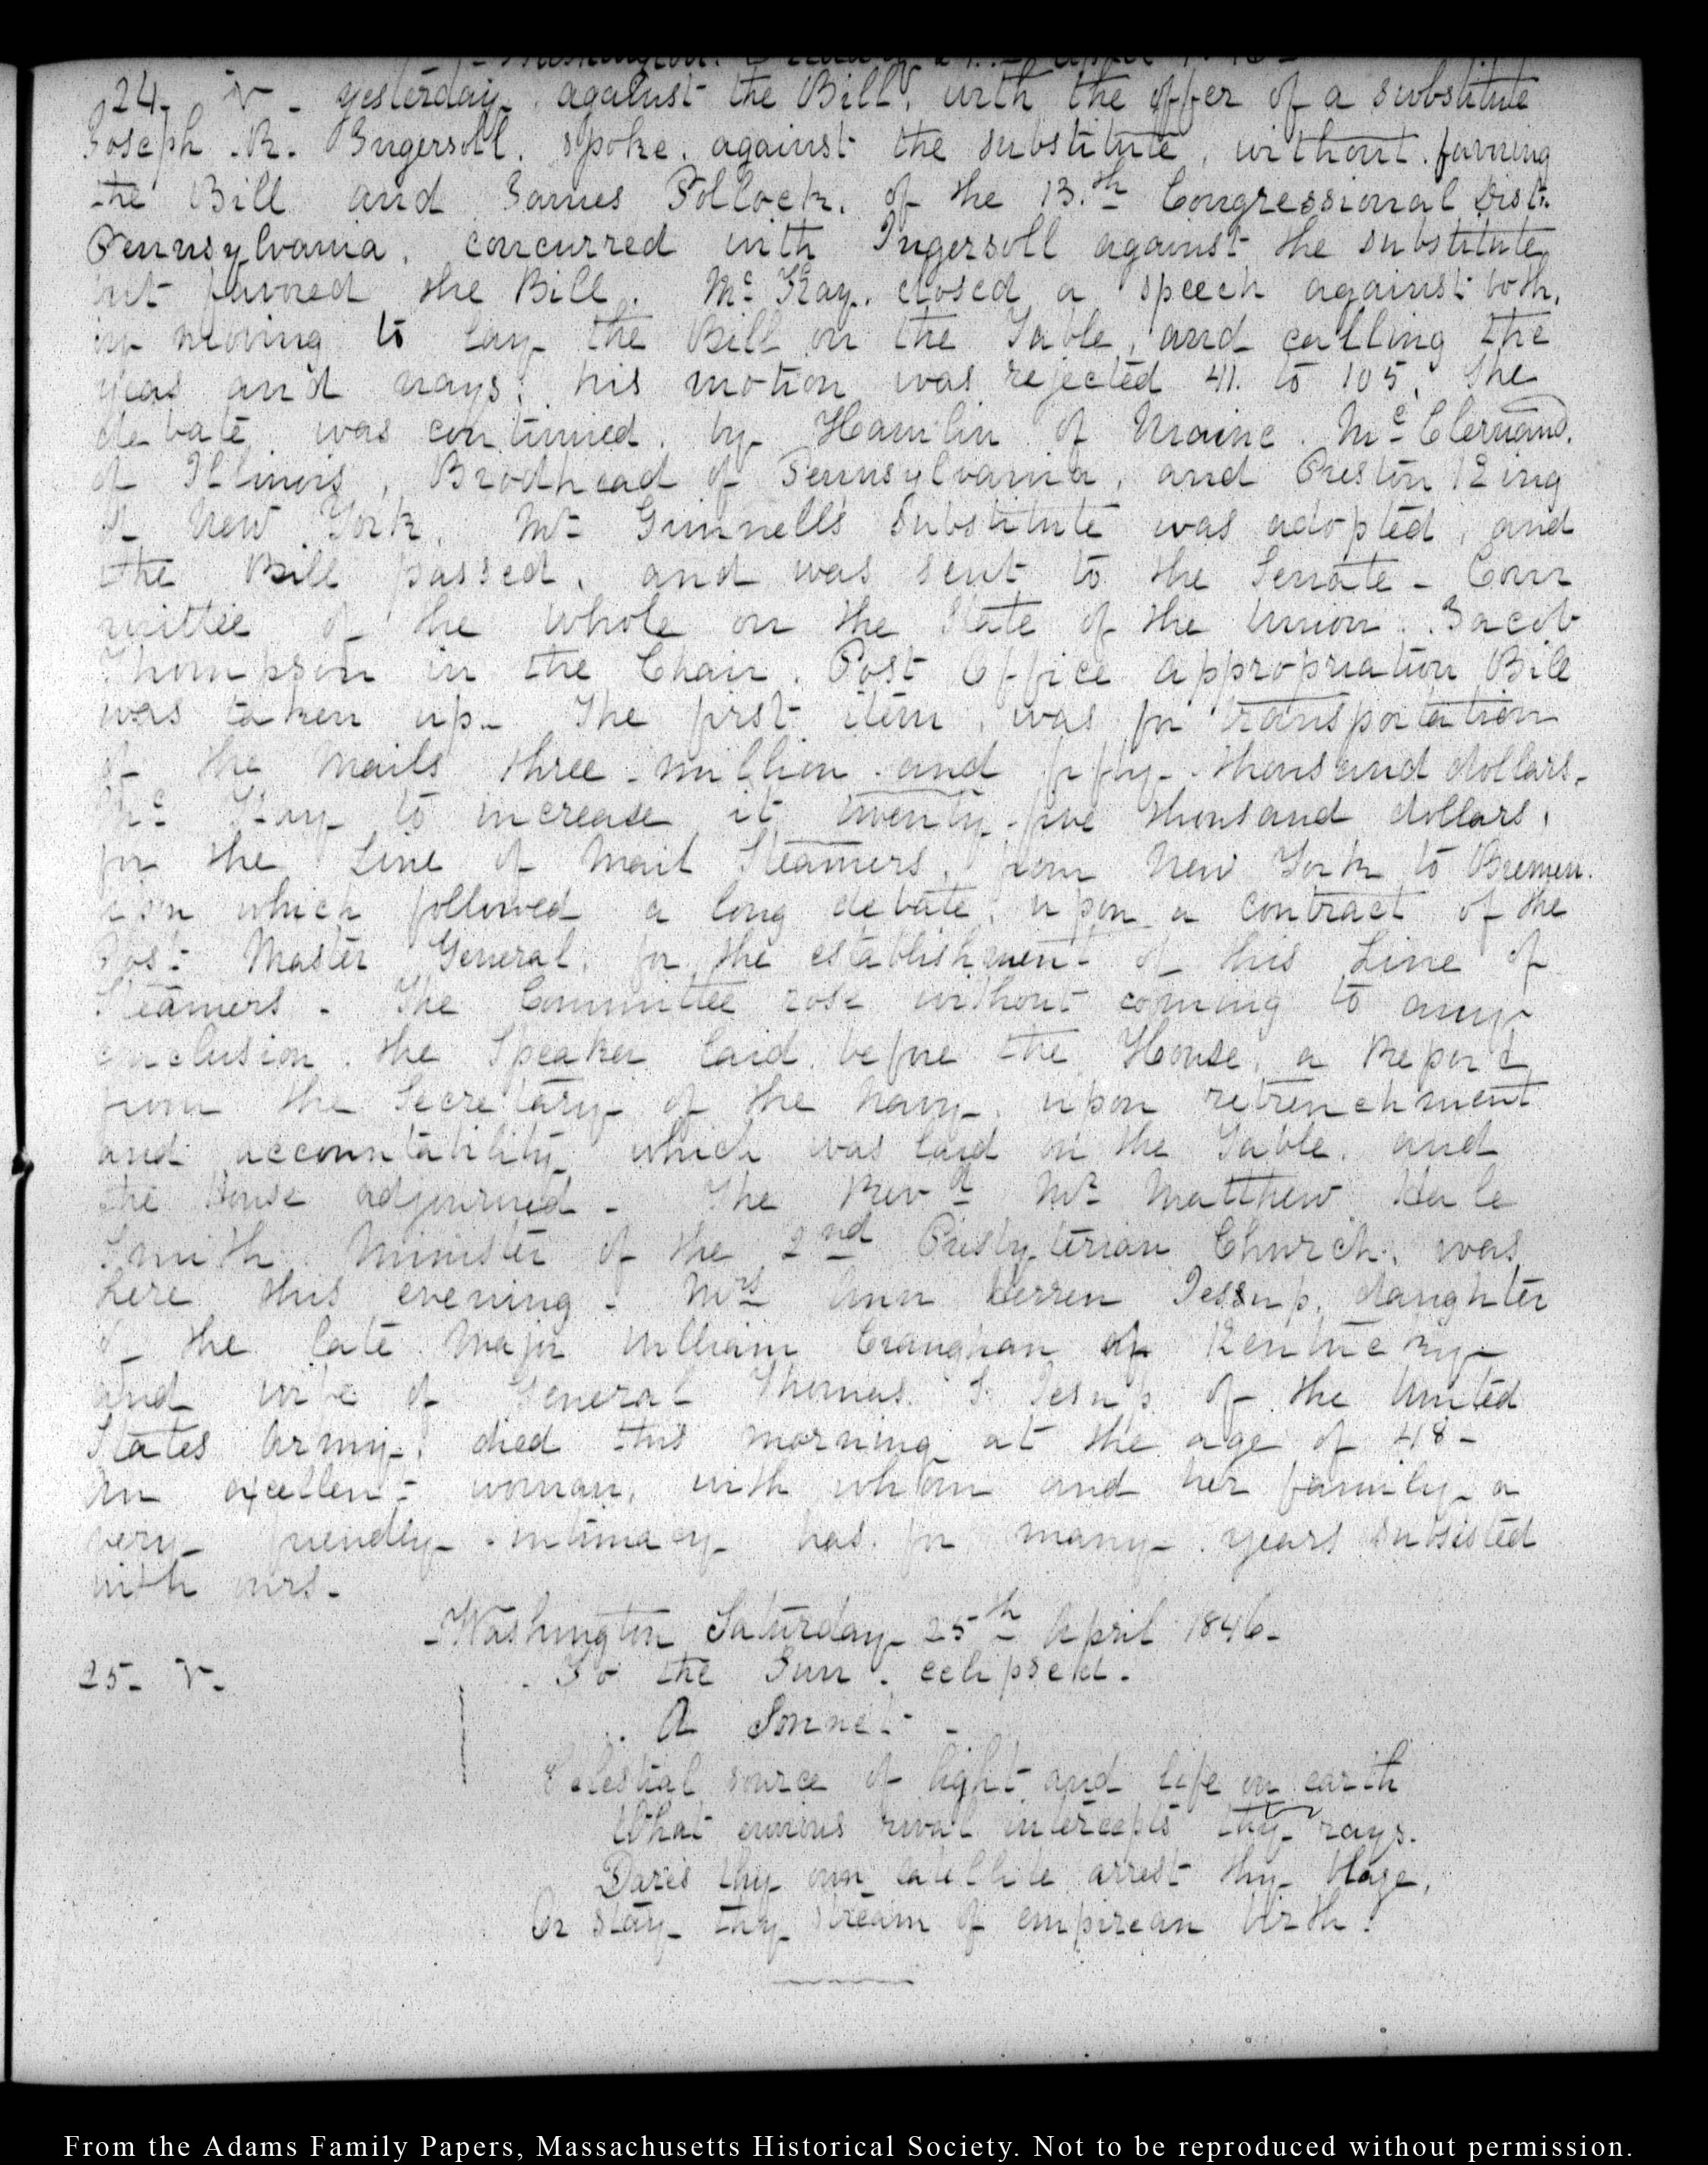 Washington. Friday 24. April 1846
24. V. yesterday against the Bill, with the offer of a substitute
Joseph R. Ingersoll, spoke, against the substitute, without favoring
the Bill and James Pollock, of the 13.th Congressional Dist.
Pennsylvania, concurred with Ingersoll against the substitute
but favored the Bill. Mc. Kay, closed a speech against both,
in moving to lay the Bill on the Table, and calling the
yeas and nays; his motion was rejected 41. to 105. The
debate was continued, by Hamlin of Maine. McClernand.
of Illinois, Brodhead of Pennsylvania, and Preston King
of New York. Mr Grinnell's substitute was adopted, and
the Bill passed, and was sent to the Senate - Com
mittee of the whole on the State of the Union. Jacob
Thompson in the Chair. Post Office appropriation Bill
was taken up - The first item, was for transportation
of the Mails three million and fifty thousand dollars -
Mc Kay to increase it twenty-five thousand dollars,
for the Line of Mail Steamers, from New York to Bremen.
upon which followed a long debate, upon a contract of the
Post Master General, for the establishment of this Line of
Steamers - The Committee rose without coming to any
conclusion. the Speaker laid before the House, a Report
from the Secretary of the Navy, upon retrenchment
and accountability which was laid on the Table, and
the House adjourned - The Revd Mr Matthew Hale
Smith Minister of the 2nd Presbyterian Church, was
here this evening - Mrs Ann Herren Jessup, daughter
of the late Major William Craughan of Kentucky
and wife of General Thomas S. Jesup of the United
States Army, died this morning at the age of 48 -
An excellent woman, with whom and her family a
very friendly intimacy has for many years subsisted
with ours -
- Washington Saturday 25th April 1846 -
25. V. To the Sun. eclipsed.
A Sonnet -
Celestial source of light and life on earth
What envious rival intercepts thy rays.
Dares thy own satellite arrest thy blaze,
Or stay thy stream of empirean birth?
From the Adams Family Papers, Massachusetts Historical Society. Not to be reproduced without permission.